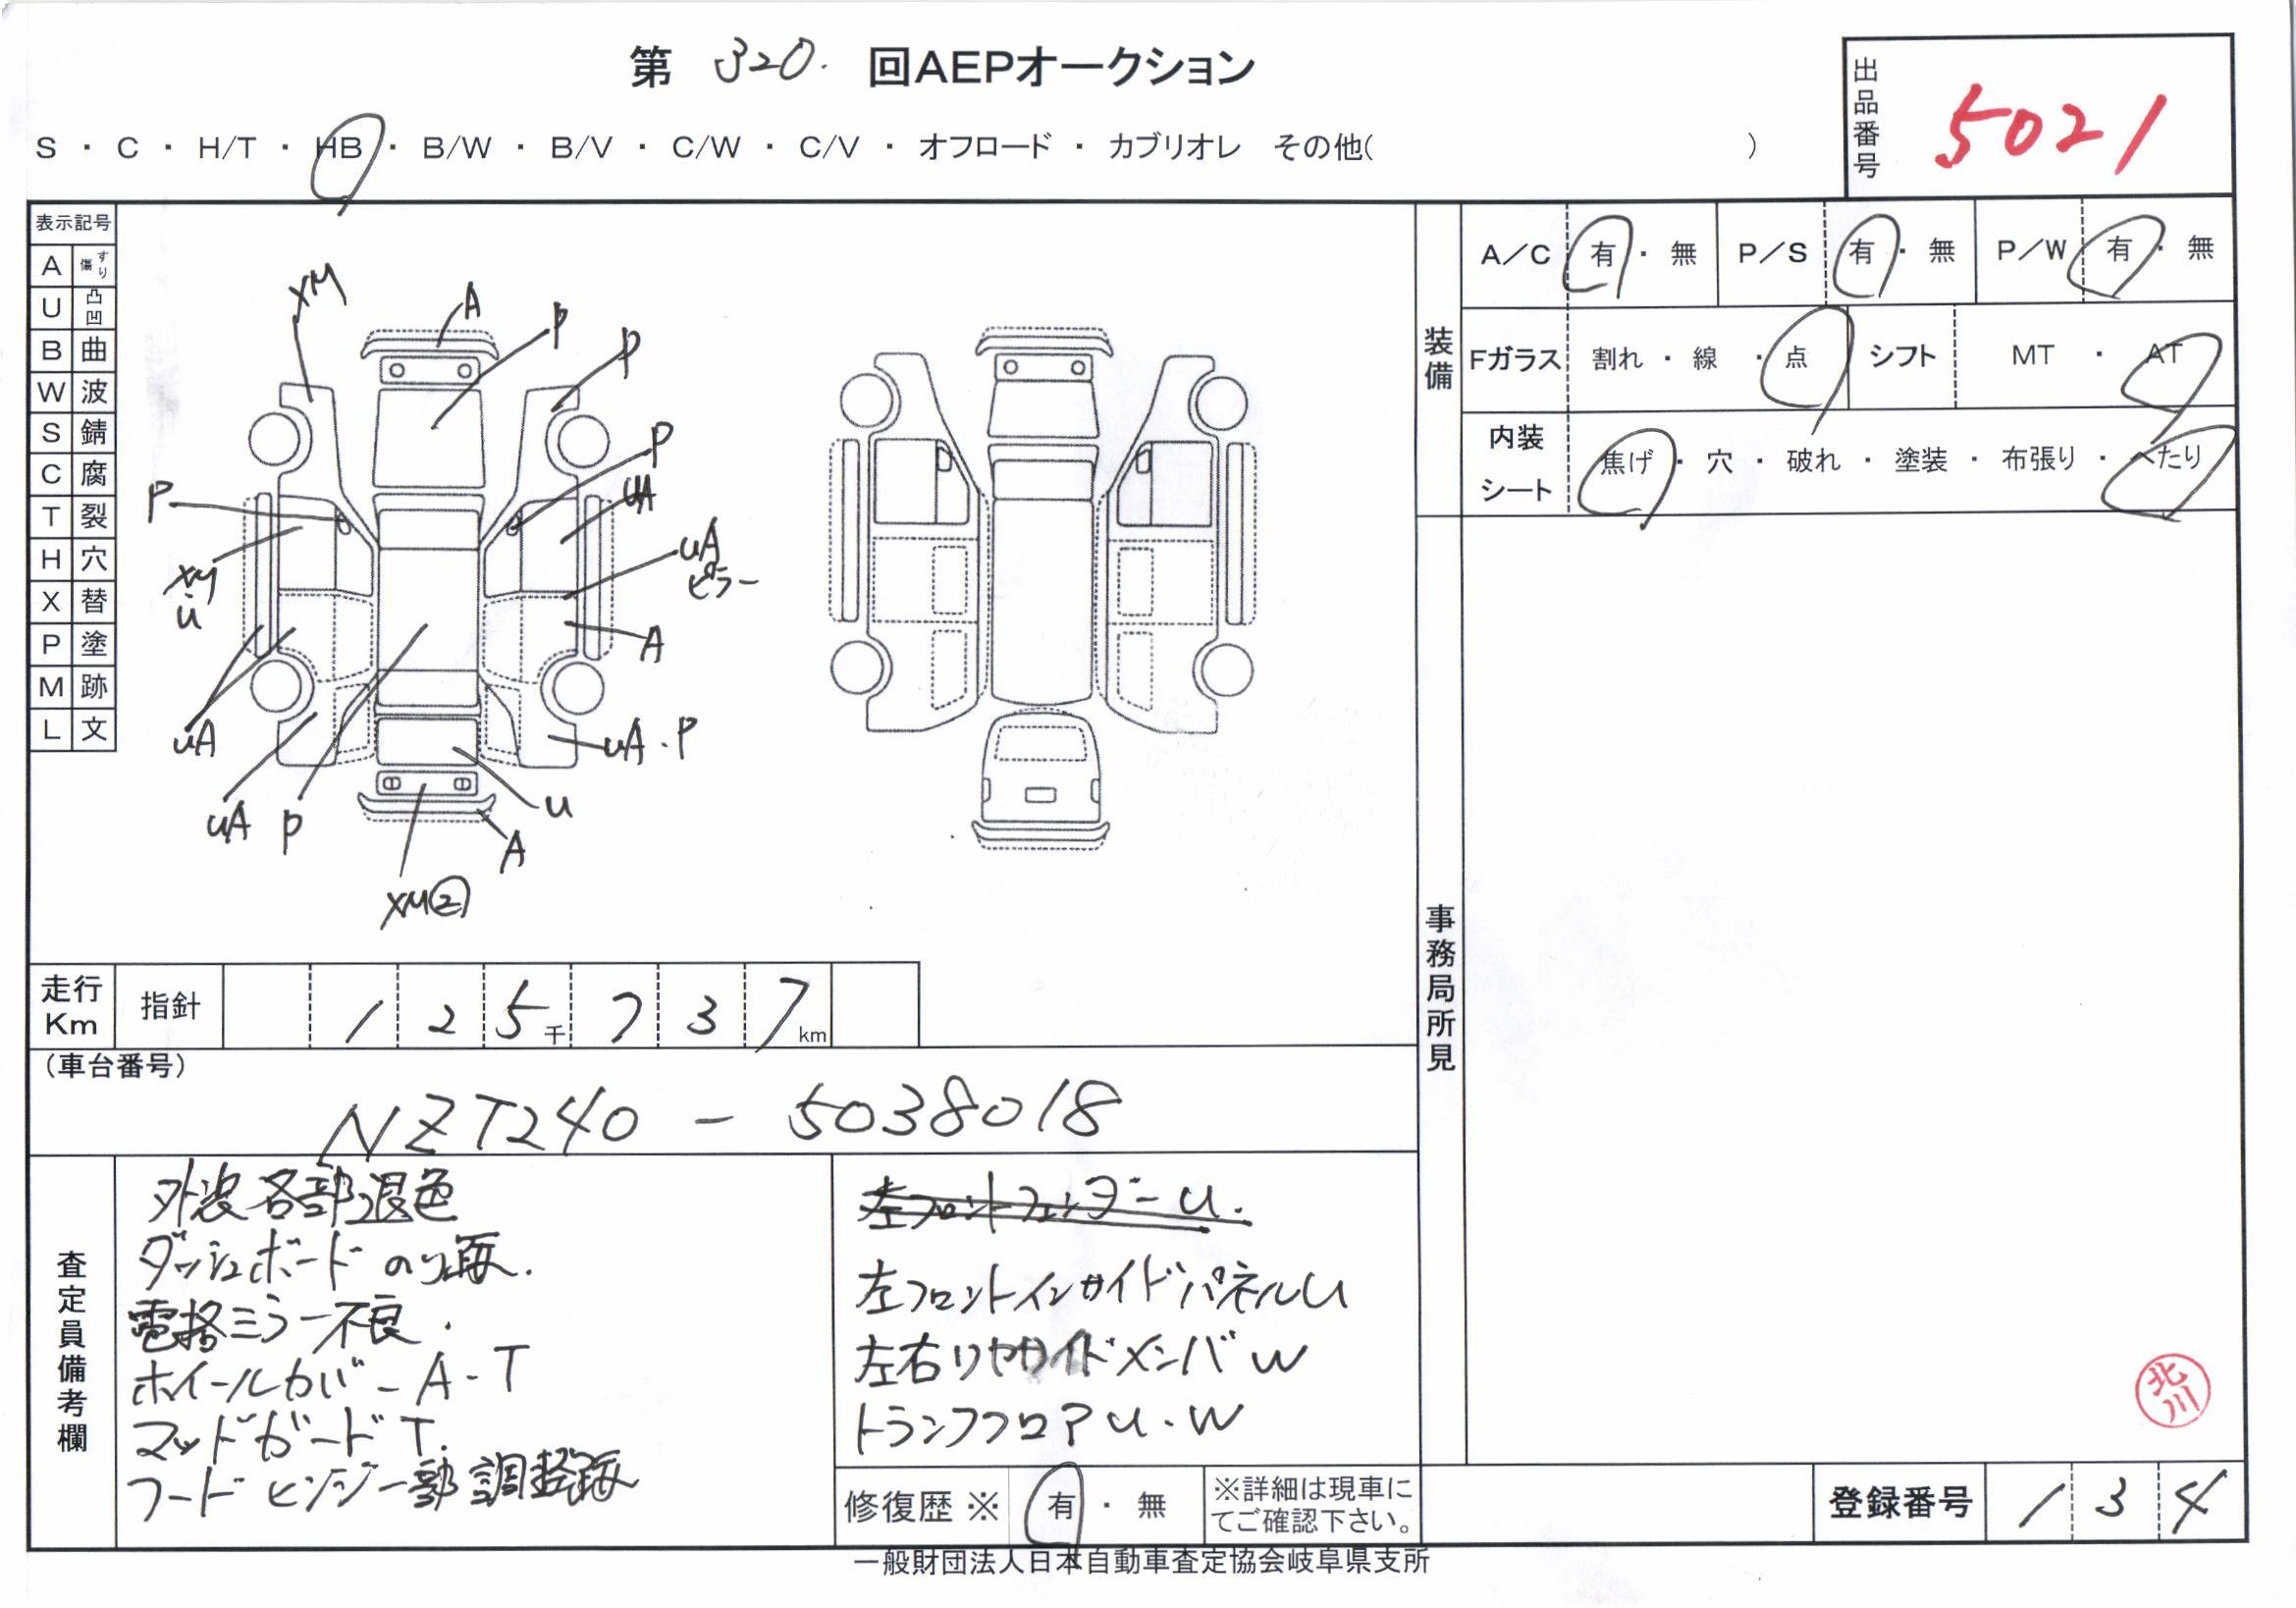 第 320. 回AEPオークション
出品番号 5021
S ・ C ・ H/T ・ HB ・ B/W ・ B/V ・ C/W ・ C/V ・ オフロード ・ カブリオレ その他( )
表示記号
A すり傷
U 凸凹
B 曲
W 波
S 錆
C 腐
T 裂
H 穴
X 替
P 塗
M 跡
L 文
XM
A
P
P
P
P
UA
UA
ピラー
XM
U
A
UA
UA・P
UA
P
U
A
XM②
装備
A/C 有 ・ 無 P/S 有 ・ 無 P/W 有 ・ 無
Fガラス 割れ ・ 線 ・ 点 シフト MT ・ AT
内装シート 焦げ ・ 穴 ・ 破れ ・ 塗装 ・ 布張り ・ へたり
事務局所見
走行Km 指針 125千737km
(車台番号)
NZT240 - 5038018
査定員備考欄
外装各部退色
ダッシュボード のり痕.
電格ミラー不良.
ホイールカバーA・T
マッドガードT.
フードヒンジ一部調整痕
左フロントフェンダーU.
左フロントインサイドパネルU
左右リヤサイドメンバW
トランクフロアU・W
修復歴 ※ 有 ・ 無 ※詳細は現車にてご確認下さい。
北川
登録番号 134
一般財団法人日本自動車査定協会岐阜県支所